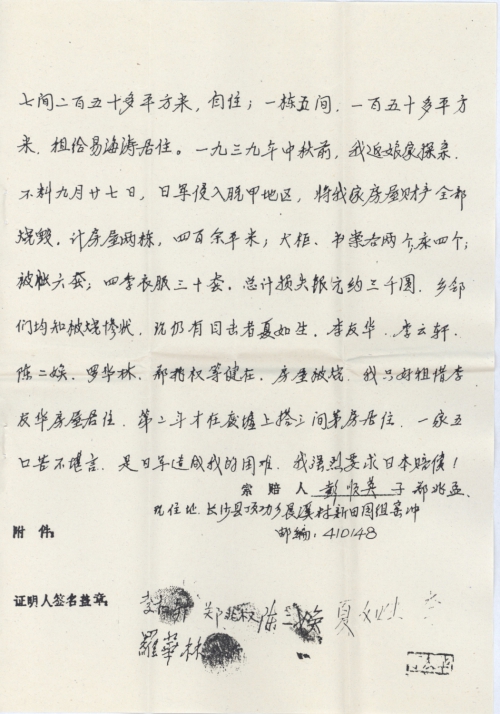 七间二百五十多平方米，自住；一栋五间，一百五十多平方
米，租给易海涛居住。一九三九年中秋前，我返娘家探亲，
不料九月廿七日，日军侵入脱甲地区，将我家房屋财产全部
烧毁，计房屋两栋，四百余平米；大柜、书案各两个，床四个；
被帐六套；四季衣服三十套，总计损失银元约三千圆，乡邻
们均知被烧惨状，现仍有目击者夏如生，李友华，李云轩，
陈二焕，罗华林，郑兆权等健在，房屋被烧，我只好租借李
友华房屋居住，第二年才在废墟上搭三间茅房居住，一家五
口苦不堪言，是日军造成我的困难，我强烈要求日本赔偿！
索赔人 彭收英 子 郑兆孟
现住地 长沙县 乡 村新田围组窑冲
附件： 邮编：410148
证明人签名盖章： 李 郑兆权 陈二焕 夏 李
羅華林